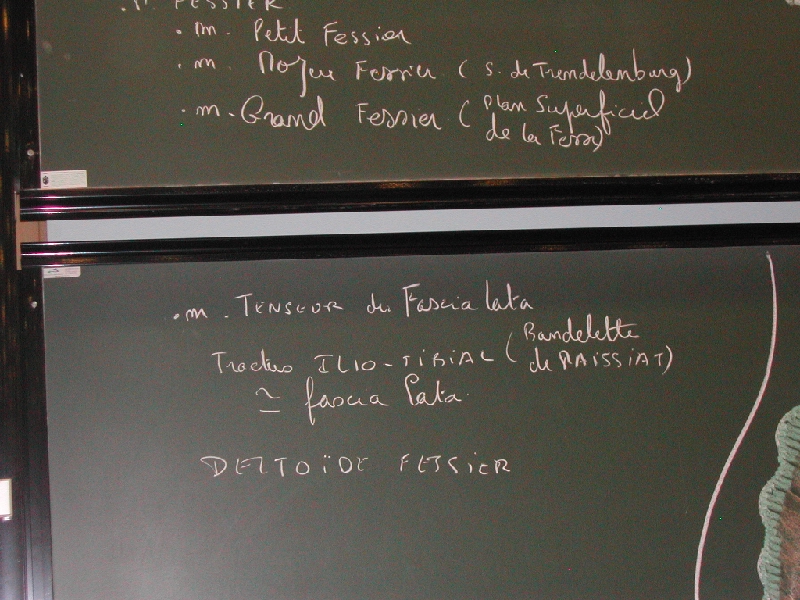 . m. FESSIER
. m. Petit Fessier
. m. Moyen Fessier ( S. de Trendelenburg)
. m. Grand Fessier ( Plan Superficiel
de la Fesse)
. m. TENSEUR du Fascia lata
Tractus ILIO-TIBIAL ( Bandelette
de MAISSIAT)
≃ fascia lata
DELTOÏDE FESSIER